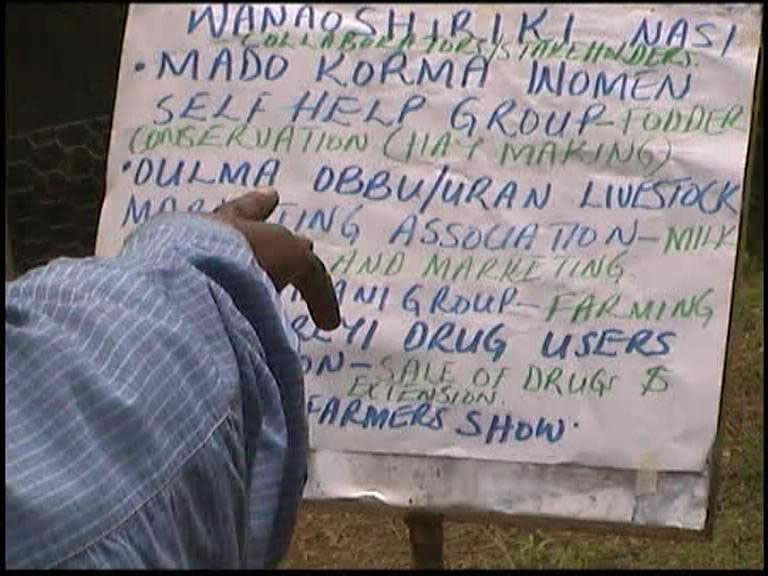 WANAOSHIRIKI NASI
COLLABORATORS/STAKEHOLDERS.
• MADO KORMA WOMEN
SELF HELP GROUP-FODDER
CONSERVATION (HAY MAKING)
• DULMA OBBU/URAN LIVESTOCK
ASSOCIATION-MILK
AND MARKETING
GROUP-FARMING
DRUG USERS
SALE OF DRUGS &
EXTENSION.
FARMERS SHOW.